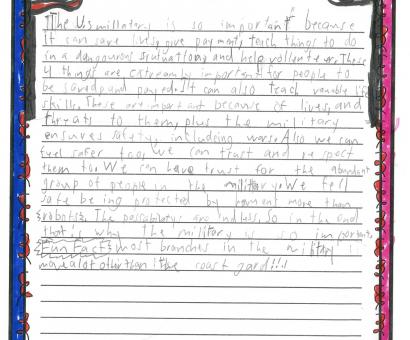 The US millatary is so important" because
It can save lives, give payment, teach things to do
in a dangourous situation, and help vollenteer. These
4 things are extreamly important for people to
be saved and payed. It can also teach vanable life
skills. These are important because of lives, and
threats to them, plus the military
ensures safety, including wars. Also we can
feel safer too, we can trust and respect
them too. We can have trust for the abundant
group of people in the military. We fell
safe being protected by humans more than
robots. The possability are endless. So in the end
that's why the military is so important.
Fun Fact: most branches in the military
move alot other than the coast gard!!!